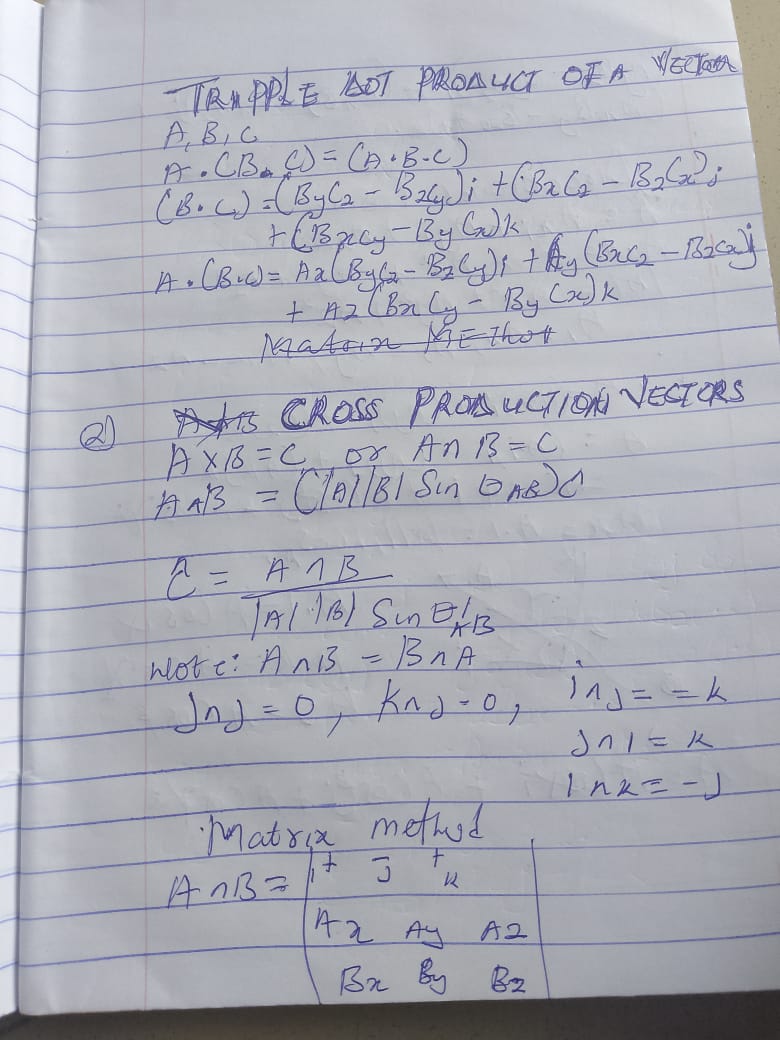 TRIPPLE DOT PRODUCT OF A VECTOR
A, B, C
A . (B . C) = (A . B . C)
(B . C) = (ByCz - BzCy)i + (BxCz - BzCx)j
+ (BxCy - ByCx)k
A . (B.C) = Ax(ByCz - BzCy)i + Ay(BxCz - BzCx)j
+ Az(BxCy - ByCx)k
Matrix METhod
2) CROSS PRODUCTION VECTORS
A X B = C or A n B = C
A ∧ B = (|A||B| Sin θAB) C
Ĉ = A ∧ B
|A| |B| Sin θAB
Note: A n B = B n A
J n J = 0, K n J = 0, i n j = = k
J n i = k
i n k = -J
Matrix method
A n B = i+ j- k+
Ax Ay Az
Bx By Bz